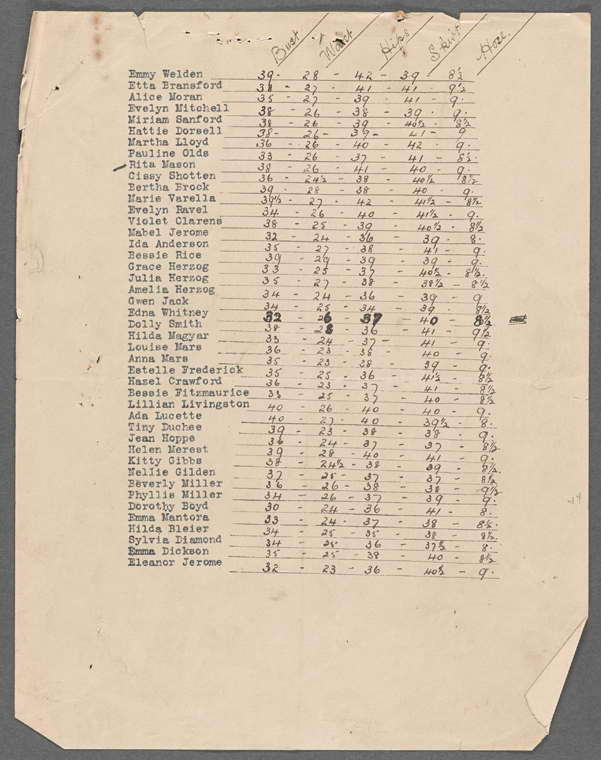 Bust Waist Hips Skirt Hose.
Emmy Welden 39. 28 - 42 - 39 8½
Etta Bransford 38 - 27 - 41 - 41 - 9½
Alice Moran 35 - 27 - 39 - 41 - 9.
Evelyn Mitchell 38 - 26 - 38 - 39 - 9.
Miriam Sanford 38 - 26 - 39 - 40½ - 8½
Hattie Dorsell 38 - 26 - 39 - 41 - 9
Martha Lloyd 36 - 26 - 40 - 42 - 9.
Pauline Olds 33 - 26 - 37 - 41 - 8½
Rita Mason 38 - 26 - 41 - 40 - 9.
Cissy Shotten 36 - 24½ - 38 - 40½ - 8½
Bertha Brock 39 - 28 - 38 - 40 - 9.
Marie Varella 39½ - 27 - 42 - 41½ - 8½
Evelyn Ravel 34 - 26 - 40 - 41½ - 9.
Violet Clarens 38 - 25 - 39 - 40½ - 8½
Mabel Jerome 32 - 24 - 36 - 39 - 8.
Ida Anderson 35 - 27 - 38 - 41 - 9.
Bessie Rice 39 - 29 - 39 - 39 - 9.
Grace Herzog 33 - 25 - 37 - 40½ - 8½.
Julia Herzog 35 - 27 - 38 - 38½ - 8½
Amelia Herzog 34 - 24 - 36 - 39 - 9
Gwen Jack 34 - 25 - 34 - 39 - 8½
Edna Whitney 32 - 26 - 37 - 40 8½
Dolly Smith 38 - 28 - 36 - 41 - 9½
Hilda Magyar 33 - 24 - 37 - 41 - 9.
Louise Mars 36 - 23 - 38 - 40 - 9.
Anna Mars 35 - 23 - 38 - 39 - 9.
Estelle Frederick 35 - 25 - 36 - 41½ - 8½
Hazel Crawford 36 - 23 - 37 - 41 - 8½
Bessie Fitzmaurice 33 - 25 - 37 - 40 - 8½
Lillian Livingston 40 - 26 - 40 - 40 - 9.
Ada Lucette 40 - 27 - 40 - 39½ - 8.
Tiny Duchee 39 - 23 - 38 - 38 - 9.
Jean Hoppe 36 - 24 - 37 - 37 - 8½
Helen Merest 39 - 28 - 40 - 41 - 9.
Kitty Gibbs 38 - 24½ - 38 - 39 - 8½
Nellie Gilden 37 - 25 - 37 - 37 - 8½
Beverly Miller 36 - 26 - 38 - 38 - 9½
Phyllis Miller 34 - 26 - 37 - 39 - 9.
Dorothy Boyd 30 - 24 - 36 - 41 - 8.
Emma Mantora 33 - 24 - 37 - 38 - 8½
Hilda Bleier 34 - 25 - 35 - 38 - 8½
Sylvia Diamond 34 - 25 - 36 - 37½ - 8.
Emma Dickson 35 - 25 - 38 - 40 - 8½
Eleanor Jerome 32 - 23 - 36 - 40½ - 9.